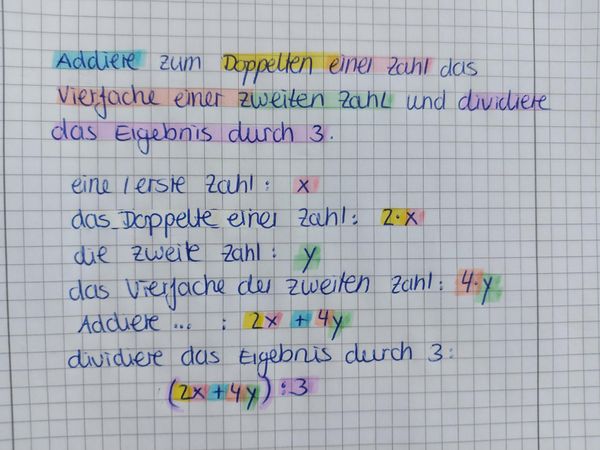 Addiere zum Doppelten einer Zahl das
Vierfache einer zweiten Zahl und dividiere
das Ergebnis durch 3.
eine / erste Zahl: x
das Doppelte einer Zahl: 2·x
die zweite Zahl: y
das Vierfache der zweiten Zahl: 4·y
Addiere ... : 2x + 4y
dividiere das Ergebnis durch 3:
(2x + 4y) : 3